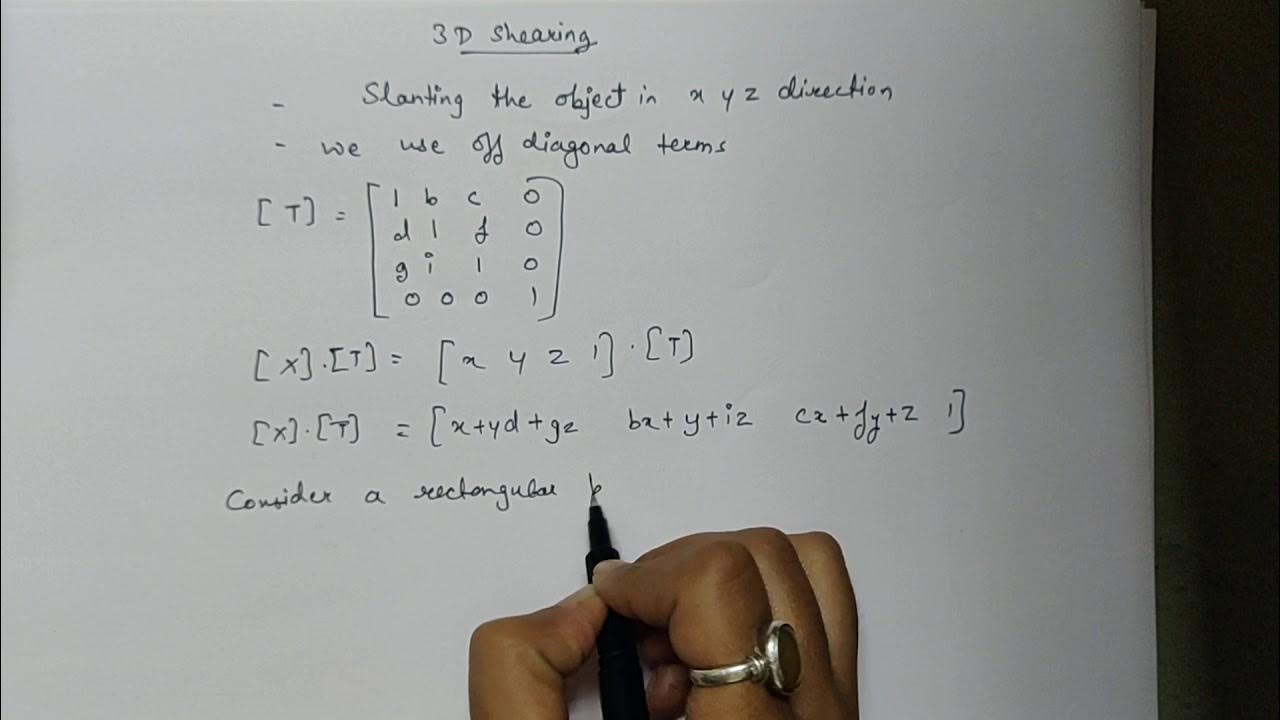 3D Shearing
- Slanting the object in x y z direction
- we use off diagonal terms
[T] = [1 b c 0
d 1 f 0
g i 1 0
0 0 0 1]
[X].[T] = [x y z 1].[T]
[X].[T] = [x+yd+gz bx+y+iz cx+fy+z 1]
Consider a rectangular b